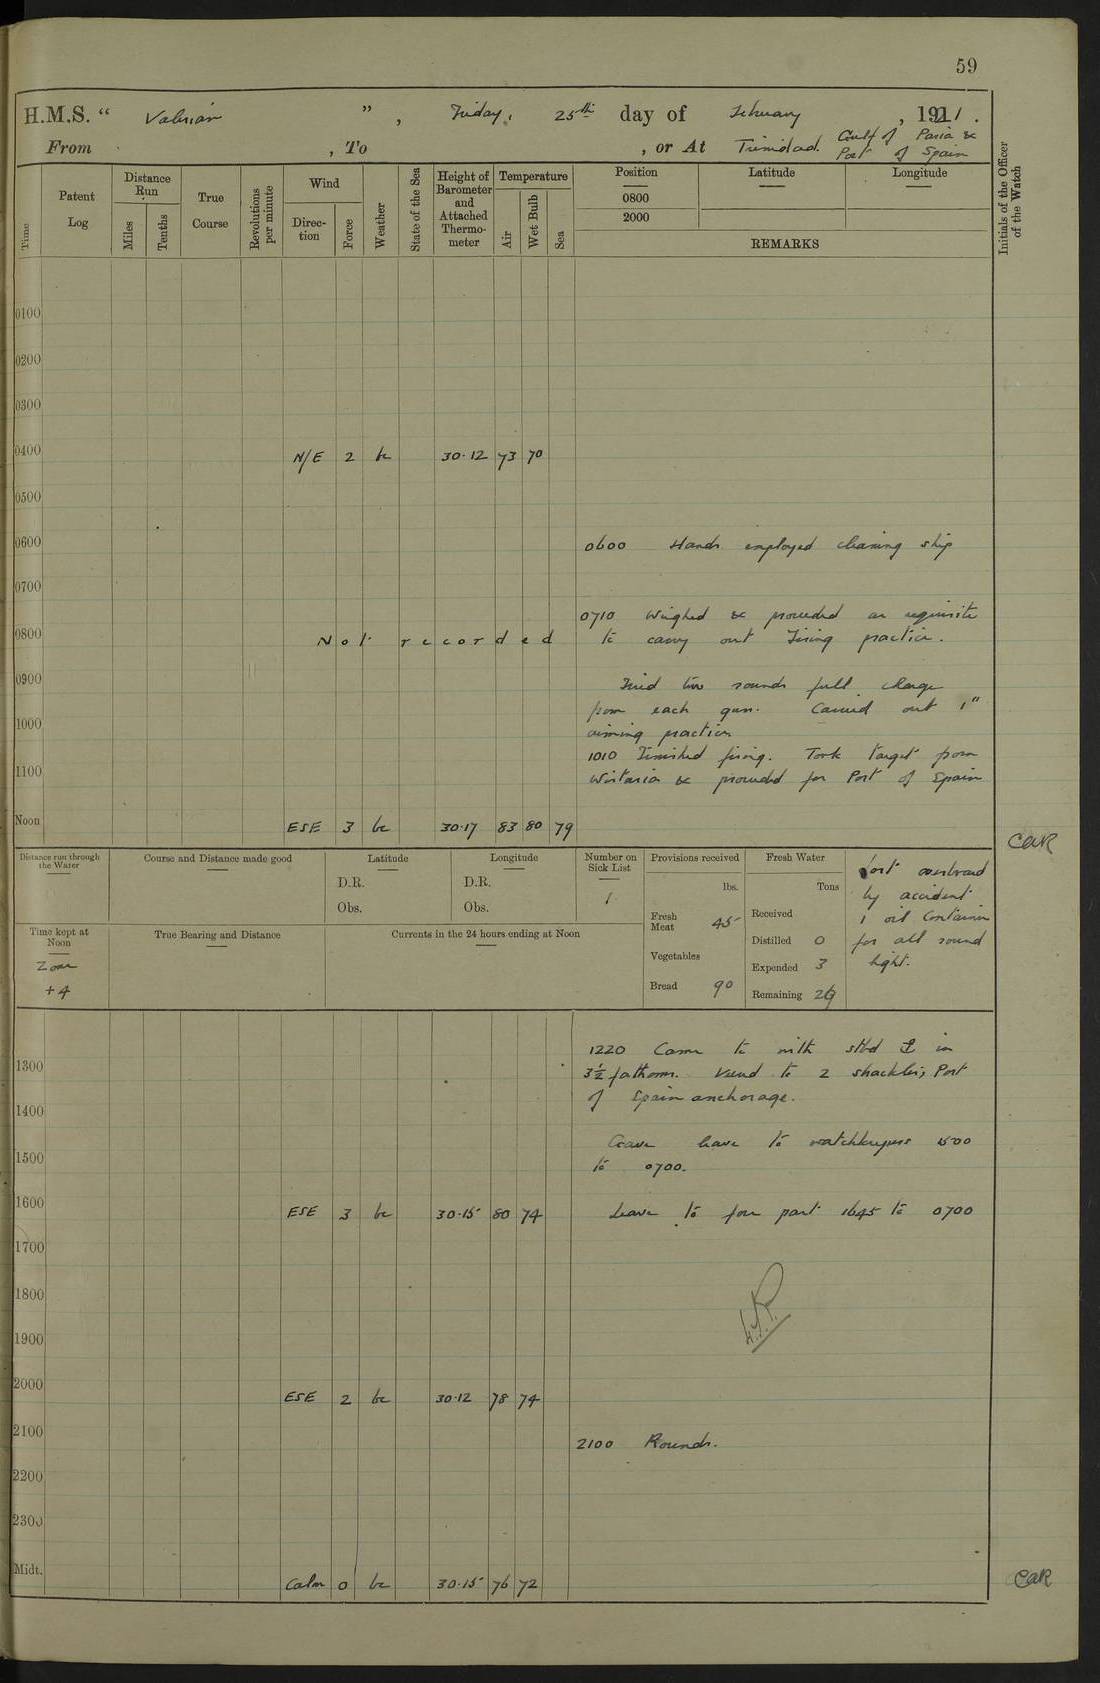 59
H.M.S. “ Valerian ” , Friday, 25th day of February , 1921 .
From , To , or At Trinidad. Gulf of Paria &
Port of Spain
Time
Patent Log
Distance Run
Miles
Tenths
True Course
Revolutions per minute
Wind
Direc-tion
Force
Weather
State of the Sea
Height of Barometer and Attached Thermo-meter
Temperature
Air
Wet Bulb
Sea
Position
0800
2000
Latitude
Longitude
REMARKS
Initials of the Officer of the Watch
0100
0200
0300
0400 N/E 2 bc 30.12 73 70
0500
0600 0600 Hands employed cleaning ship
0700
0710 Weighed & proceeded as requisite
0800 Not recorded to carry out Firing practice.
0900 Fired two rounds full charge
from each gun. Carried out 1"
1000 aiming practice
1010 Finished firing. Took target from
1100 Wistaria & proceeded for Port of Spain
Noon ESE 3 bc 30.17 83 80 79
CAR
Distance run through the Water
Course and Distance made good
Latitude
D.R.
Obs.
Longitude
D.R.
Obs.
Number on Sick List
1
Provisions received
lbs.
Fresh Meat 45
Vegetables
Bread 90
Fresh Water
Tons
Received
Distilled 0
Expended 3
Remaining 29
Lost overboard
by accident
1 oil Container
for all round
light.
Time kept at Noon
Zone
+4
True Bearing and Distance
Currents in the 24 hours ending at Noon
1220 Came to with stbd ⚓ in
1300 3½ fathoms. Veered to 2 shackles, Port
of Spain anchorage.
1400
Gave leave to watchkeepers 1500
1500 to 0700.
1600 ESE 3 bc 30.15 80 74 Leave to four part 1645 to 0700
1700
1800
1900
2000 ESE 2 bc 30.12 78 74
2100 2100 Rounds.
2200
2300
Midt. Calm 0 bc 30.15 76 72
CAR